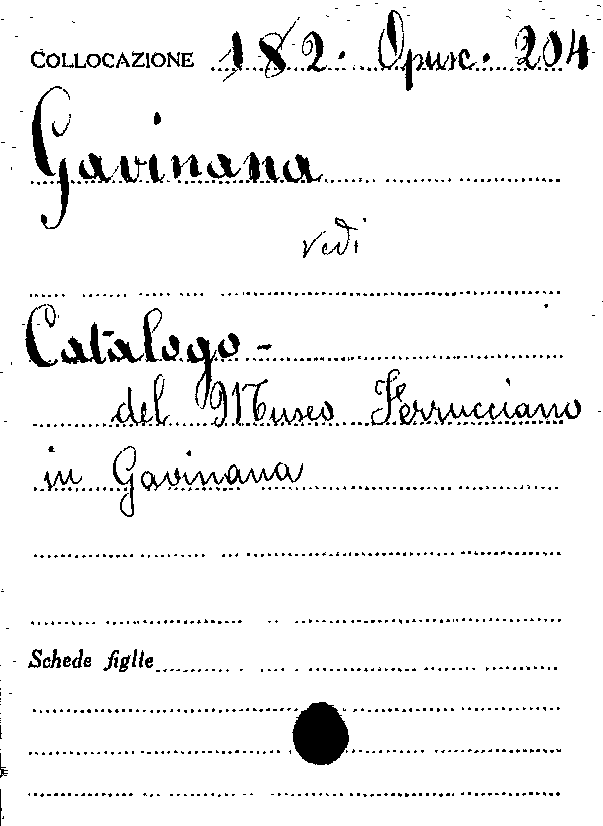 COLLOCAZIONE 182. Opusc. 204
Gavinana
vedi
Catalogo -
del Museo Ferrucciano
in Gavinana
Schede figlie